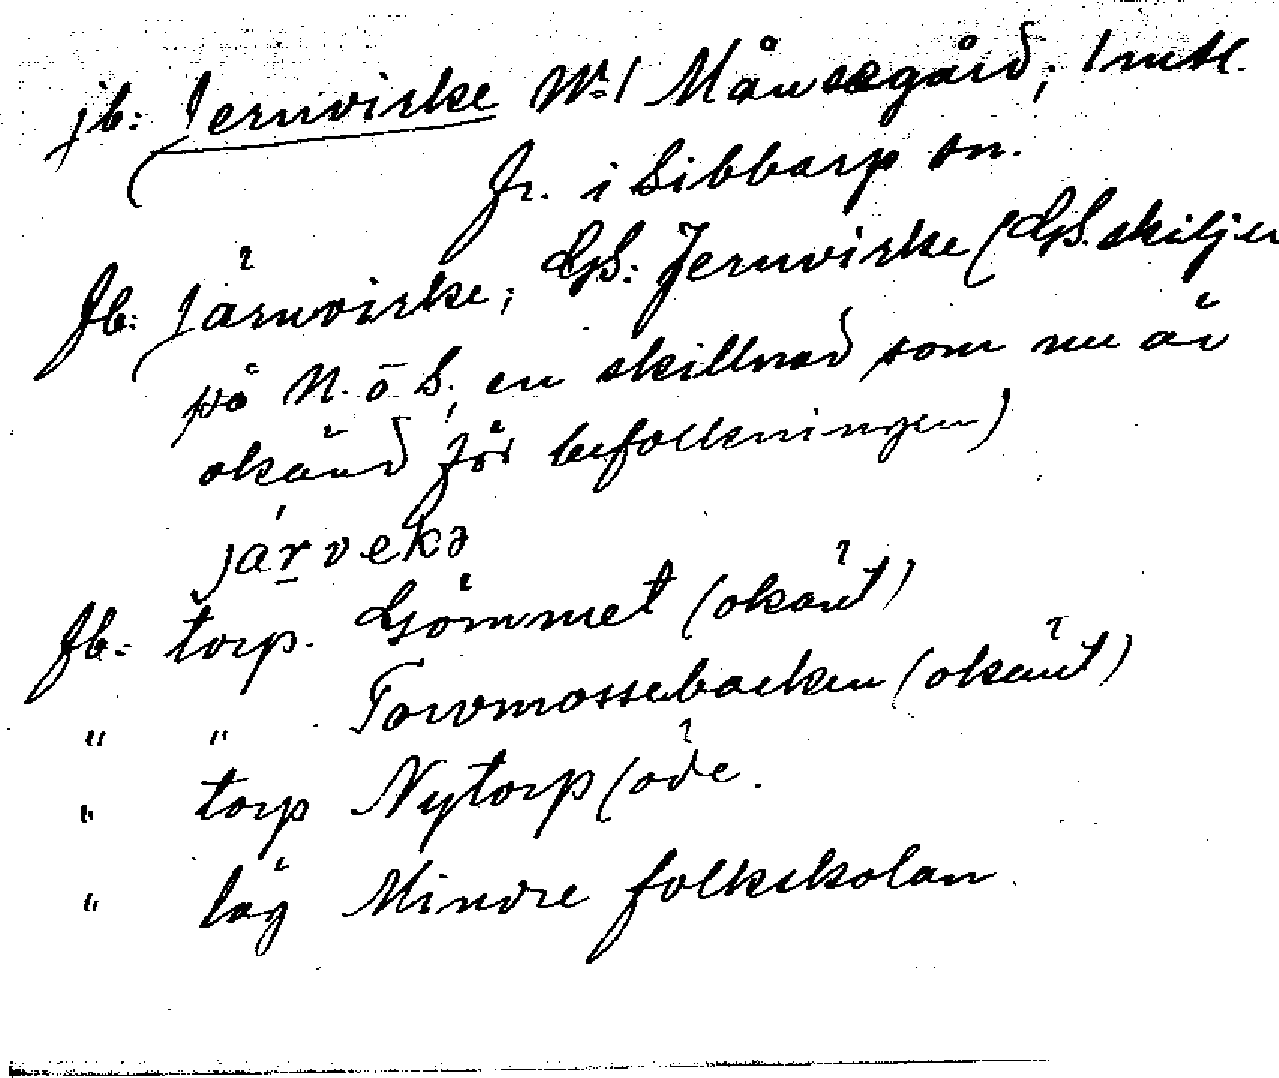 jb: Jernvirke No 1 Månsegård; 1 mtl.
Fr. i Sibbarp sn.
Jb: Järnvirke; GS: Jernvirke (GS. skiljer
på N. o S., en skillnad som nu är
okänd för befolkningen)
jár̲vekə
Jb: torp. Gömmet (okänt)
" " Torvmossebacken (okänt)
" torp Nytorp (öde.
" läg Mindre folkskolan